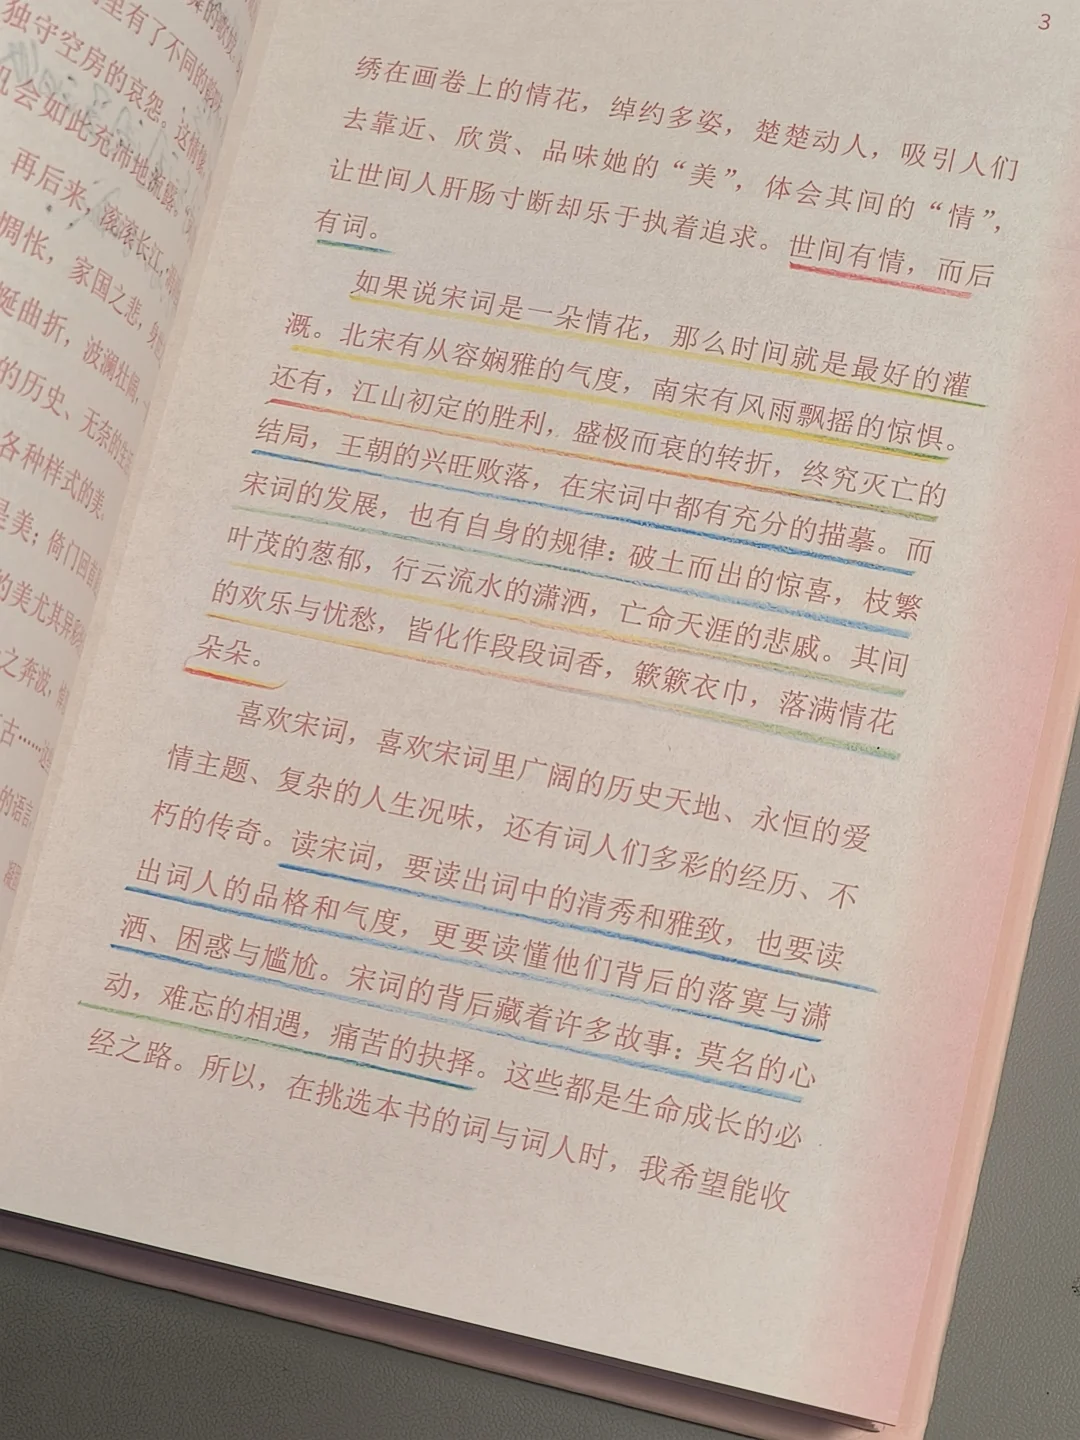 独守空房的哀怨。这情愫
会如此充沛地流露。
再后来，滚滚长江，
惆怅，家国之悲，
蜒曲折，波澜壮阔，
的历史、无奈的生活
各种样式的美。
是美；倚门回首
的美尤其异彩
之奔波，
古……
的语言
3
绣在画卷上的情花，绰约多姿，楚楚动人，吸引人们
去靠近、欣赏、品味她的“美”，体会其间的“情”，
让世间人肝肠寸断却乐于执着追求。世间有情，而后
有词。
如果说宋词是一朵情花，那么时间就是最好的灌
溉。北宋有从容娴雅的气度，南宋有风雨飘摇的惊惧。
还有，江山初定的胜利，盛极而衰的转折，终究灭亡的
结局，王朝的兴旺败落，在宋词中都有充分的描摹。而
宋词的发展，也有自身的规律：破土而出的惊喜，枝繁
叶茂的葱郁，行云流水的潇洒，亡命天涯的悲戚。其间
的欢乐与忧愁，皆化作段段词香，簌簌衣巾，落满情花
朵朵。
喜欢宋词，喜欢宋词里广阔的历史天地、永恒的爱
情主题、复杂的人生况味，还有词人们多彩的经历、不
朽的传奇。读宋词，要读出词中的清秀和雅致，也要读
出词人的品格和气度，更要读懂他们背后的落寞与潇
洒、困惑与尴尬。宋词的背后藏着许多故事：莫名的心
动，难忘的相遇，痛苦的抉择。这些都是生命成长的必
经之路。所以，在挑选本书的词与词人时，我希望能收